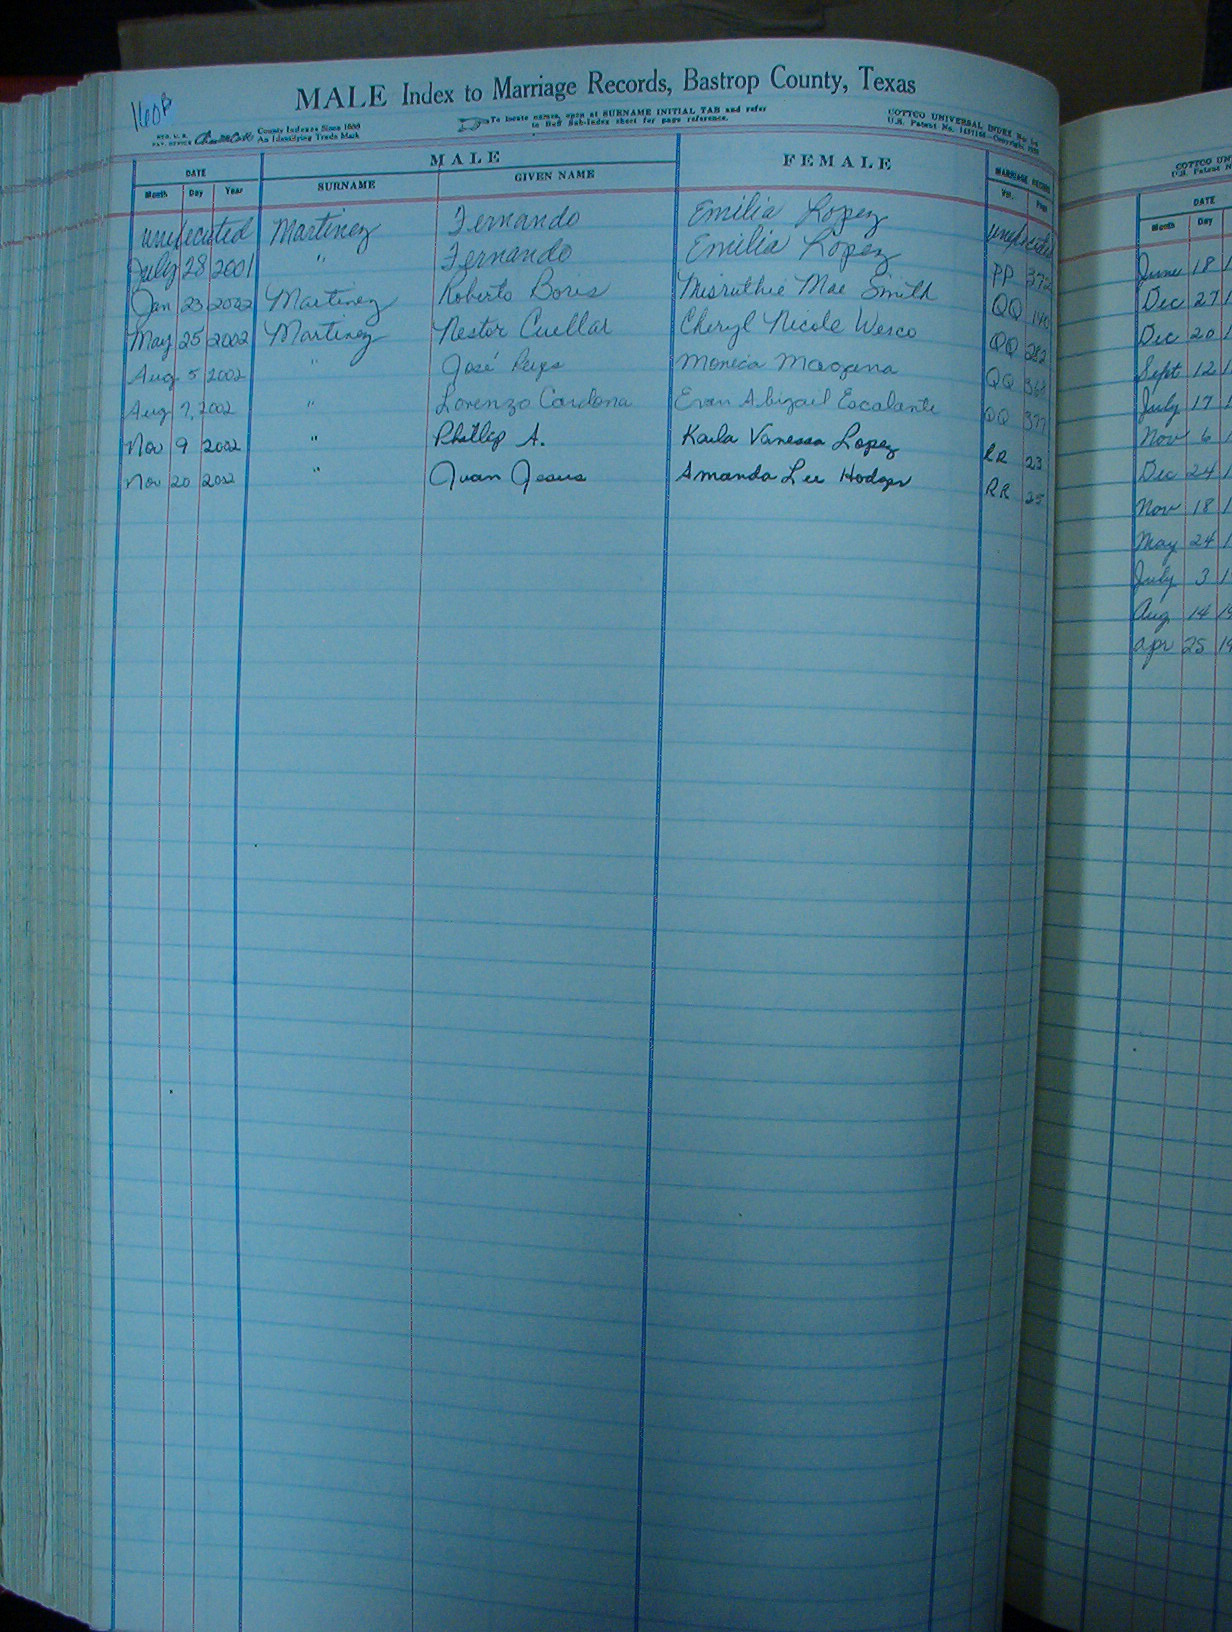 160B
MALE Index to Marriage Records, Bastrop County, Texas
REG. U. S. PAT. OFFICE County Indexes Since 1888 An Identifying Trade Mark
To locate names, open at SURNAME INITIAL TAB and refer
to Buff Sub-Index sheet for page reference.
COTTCO UNIVERSAL INDEX
U.S. Patent No.
DATE MALE FEMALE MARRIAGE RECORD
Month Day Year SURNAME GIVEN NAME Vol. Page
unexecuted Martinez Fernando Emilia Lopez unexecuted
July 28 2001 " Fernando Emilia Lopez PP 372
Jan 23 2002 Martinez Roberto Mae Smith QQ
May 25 2002 Martinez Nestor Cuellar Cheryl Nicole Wesco QQ 282
Aug 5 2002 " José Monica Magana QQ 368
Aug 7, 2002 " Lorenzo Cardona Abigail Escalante QQ 377
Nov 9 2002 " Phillip A. Karla Vanessa Lopez RR 23
Nov 20 2002 " Juan Jesus Amanda Lee Hodges RR 25
COTTCO
U.S. Patent
DATE
Month Day
June 18 1
Dec 27 1
Dec 20 1
Sept 12 1
July 17 1
Nov 6 1
Dec 24 1
Nov 18 1
May 24 1
July 3 1
Aug 14 19
Apr 25 19